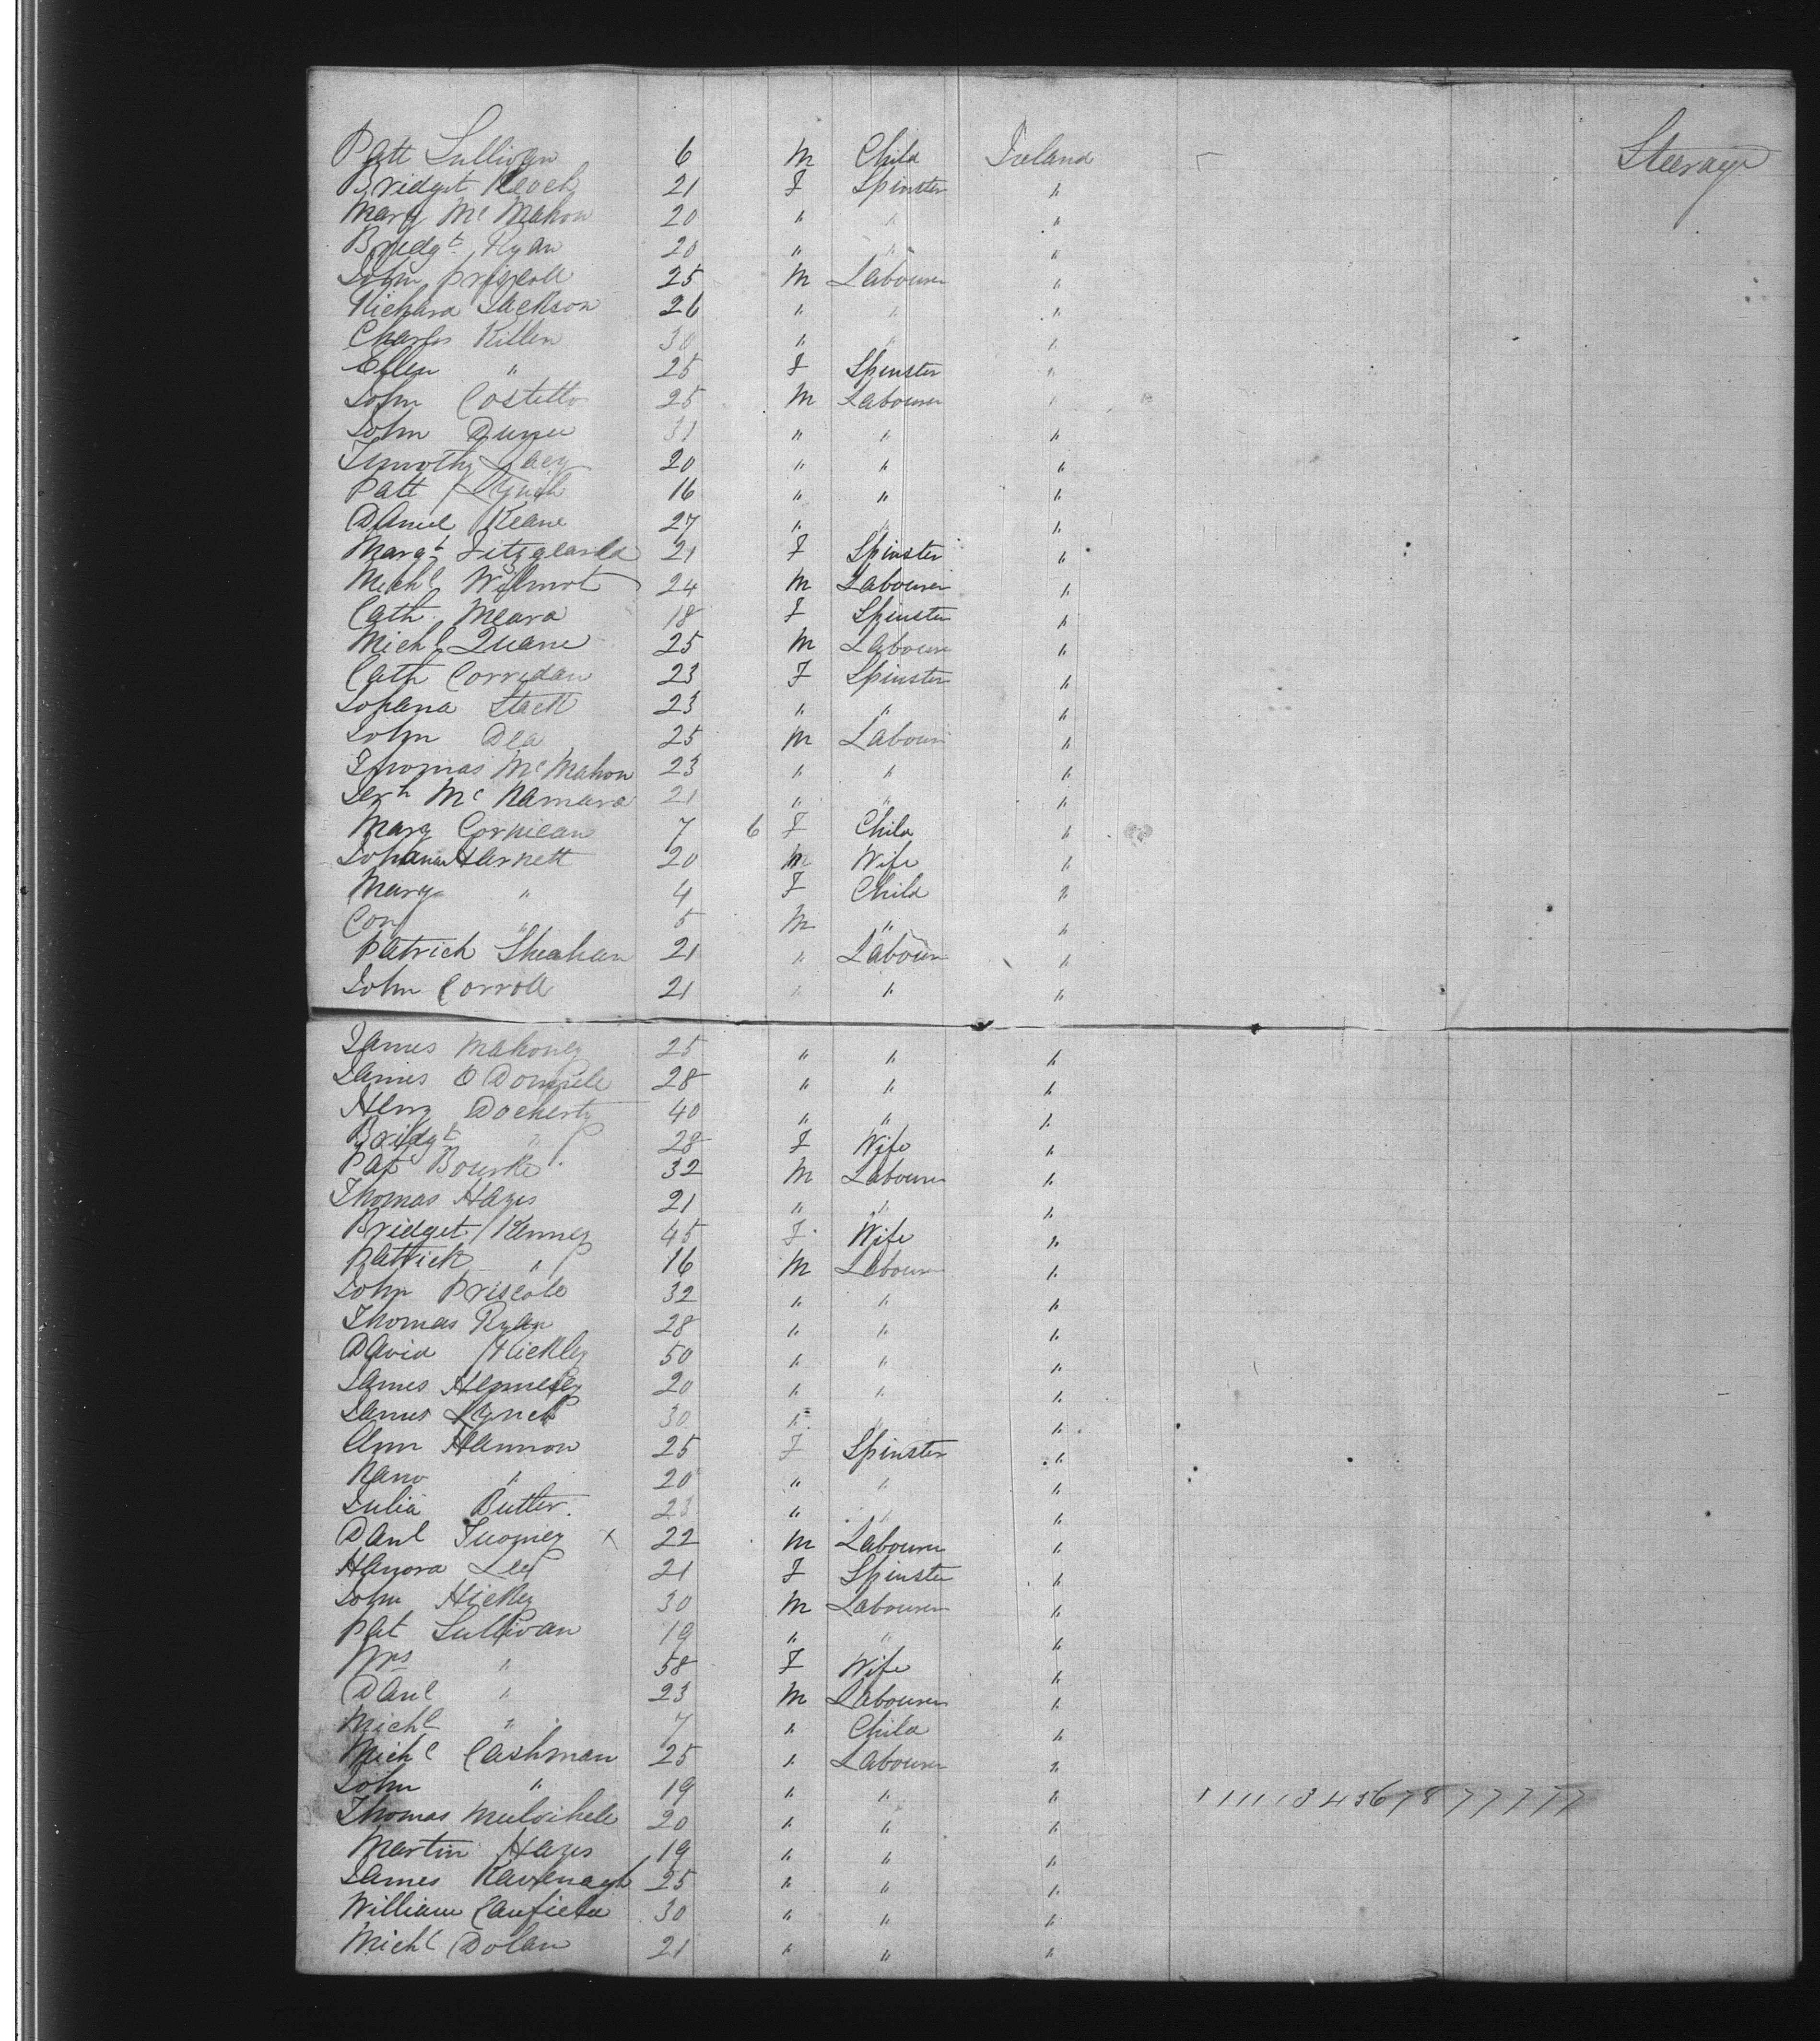 Patt Sullivan 6 M Child Ireland Steerage
Bridget Keock 21 F Spinster "
Mary Mc Mahon 20 " " "
Bridgt Ryan 20 " " "
John Driscoll 25 M Labourer "
Richard Jackson 26 " " "
Charles Killen 30 " " "
Ellen " 25 F Spinster "
John Costello 25 M Labourer "
John Dunne 31 " " "
Timothy Lacy 20 " " "
Patt Lynch 16 " " "
Daniel Keane 27 " " "
Margt Fitzgearld 21 F Spinster "
Michl Wilmot 24 M Labourer "
Cath Meara 18 F Spinster "
Michl Quane 25 M Labourer "
Cath Corridan 23 F Spinster "
Johana Stack 23 " " "
John Dea 25 M Labourer "
Thomas Mc Mahon 23 " " "
Jerh Mc Namara 21 " " "
Mary 7 6 F Child "
Johana Harnett 20 M Wife "
Mary " 4 F Child "
Con " 5 M " "
Patrick Sheahan 21 " Labourer "
John Corroll 21 " " "
James Mahoney 25 " " "
James O Donnell 28 " " "
Henry Docherty 40 " " "
Bridgt " 28 F Wife "
Pat Bourke 32 M Labourer "
Thomas Hayes 21 " " "
Bridget Kenney 45 F Wife "
Patrick " 16 M Labourer "
John Driscole 32 " " "
Thomas Ryan 28 " " "
David Hickley 50 " " "
James Hennessy 20 " " "
James Lynch 30 " " "
Ann Hannon 25 F Spinster "
Nano " 20 " " "
Julia Butler 23 " " "
Danl Twomey x 22 M Labourer "
Hanora Lee 21 F Spinster "
John Hickey 30 M Labourer "
Pat Sullivan 19 " " "
Mrs " 58 F Wife "
Danl " 23 M Labourer "
Michl " 7 " Child "
Michl Cashman 25 " Labourer "
John " 19 " " "
Thomas Mulvihele 20 " " "
Martin Hayes 19 " " "
James Kavenagh 25 " " "
William Canfield 30 " " "
Michl Dolan 21 " " "